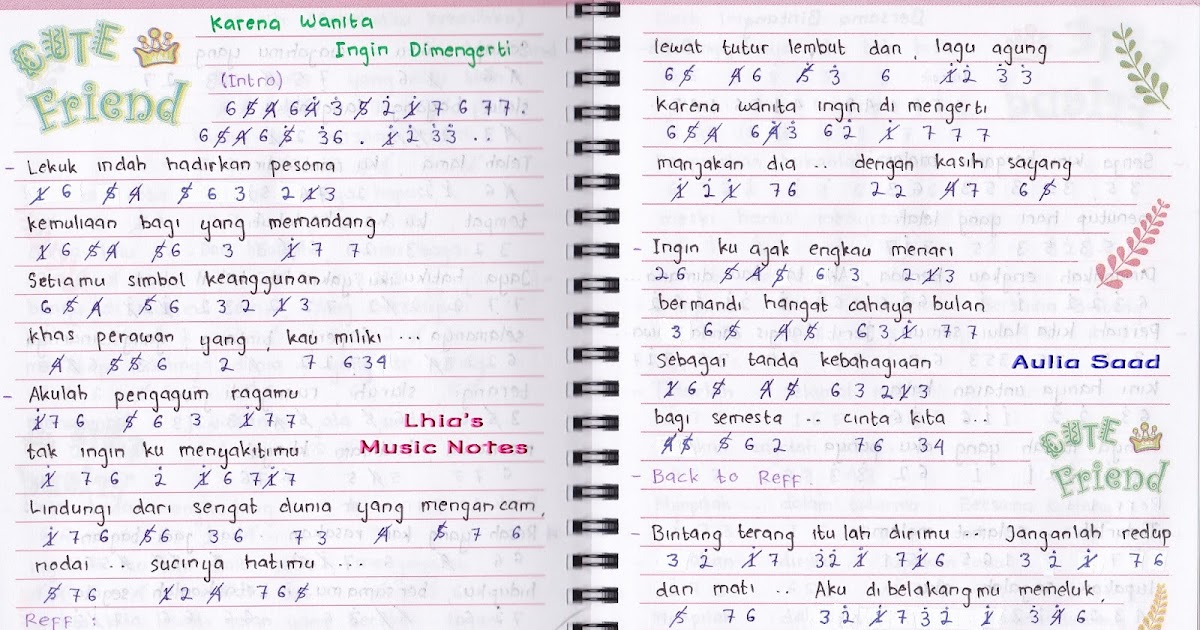 CUTE Friend
Karena Wanita
Ingin Dimengerti
(Intro)
6 5 4 6 4 3 5 2 1 7 6 7 7 .
6 5 4 6 5 3 6 . 1 2 3 3 ..
- Lekuk indah hadirkan pesona
1 6 5 4 5 6 3 2 1 3
kemuliaan bagi yang memandang
1 6 5 4 5 6 3 1 7 7
Setiamu simbol keanggunan
6 5 4 5 6 3 2 1 3
khas perawan yang kau miliki ...
4 5 5 6 2 7 6 3 4
- Akulah pengagum ragamu
1 7 6 5 6 3 1 7 7
Lhia's
Music Notes
tak ingin ku menyakitimu
1 7 6 2 1 6 7 1 7
Lindungi dari sengat dunia yang mengancam
1 7 6 5 6 3 6 7 3 4 5 7 6
nodai ... sucinya hatimu ...
5 7 6 1 2 4 7 6 5
Reff :
lewat tutur lembut dan lagu agung
6 5 4 6 5 3 6 1 2 3 3
Karena wanita ingin di mengerti
6 5 4 6 4 3 6 2 1 7 7 7
manjakan dia .. dengan kasih sayang
1 2 1 7 6 2 2 4 7 6 5
- Ingin ku ajak engkau menari
2 6 5 4 5 6 3 2 1 3
bermandi hangat cahaya bulan
3 6 5 4 5 6 3 1 7 7
Sebagai tanda kebahagiaan
1 6 5 4 5 6 3 2 1 3
Aulia Saad
bagi semesta ... cinta kita ...
4 5 5 6 2 7 6 3 4
CUTE Friend
- Back to Reff :
- Bintang terang itu lah dirimu ... Janganlah redup
3 2 1 7 3 2 1 7 1 6 3 2 1 7 6
dan mati ... Aku dibelakangmu memeluk
5 7 6 3 2 1 7 3 2 1 3 4 6